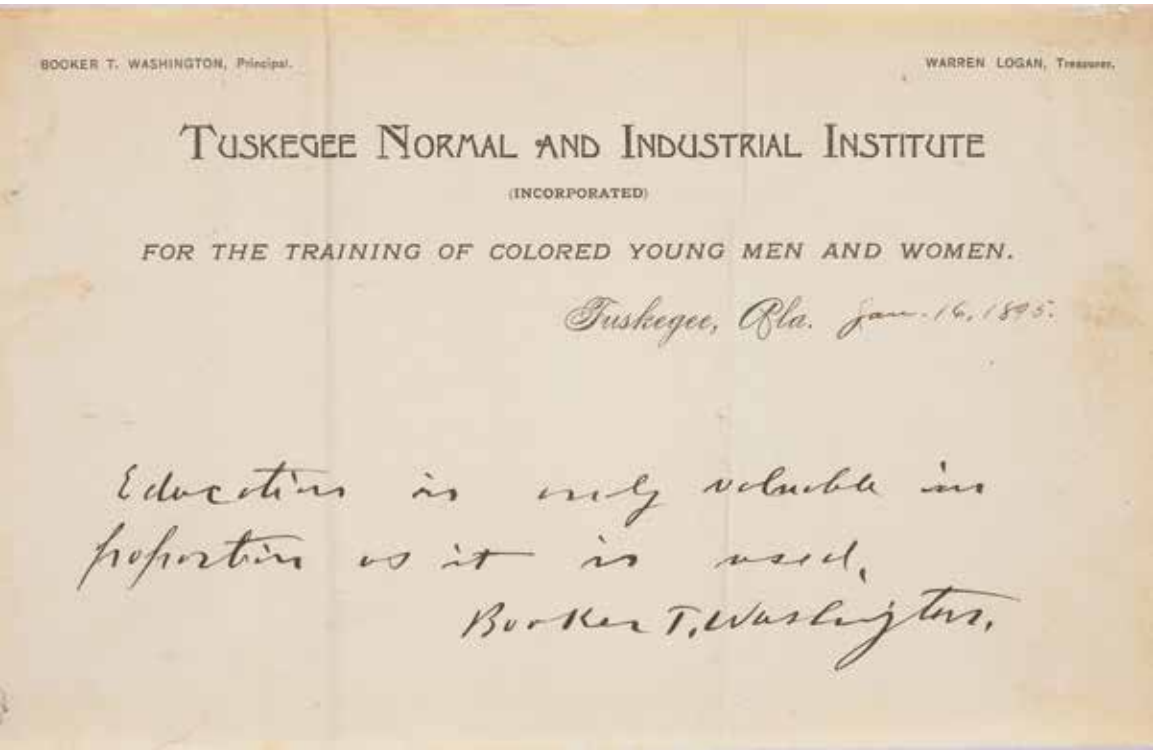 BOOKER T. WASHINGTON, Principal.
WARREN LOGAN, Treasurer.
TUSKEGEE NORMAL AND INDUSTRIAL INSTITUTE
(INCORPORATED)
FOR THE TRAINING OF COLORED YOUNG MEN AND WOMEN.
Tuskegee, Ala. Jan. 16, 1895.
Education is only valuable in
proportion as it is used.
Booker T. Washington.